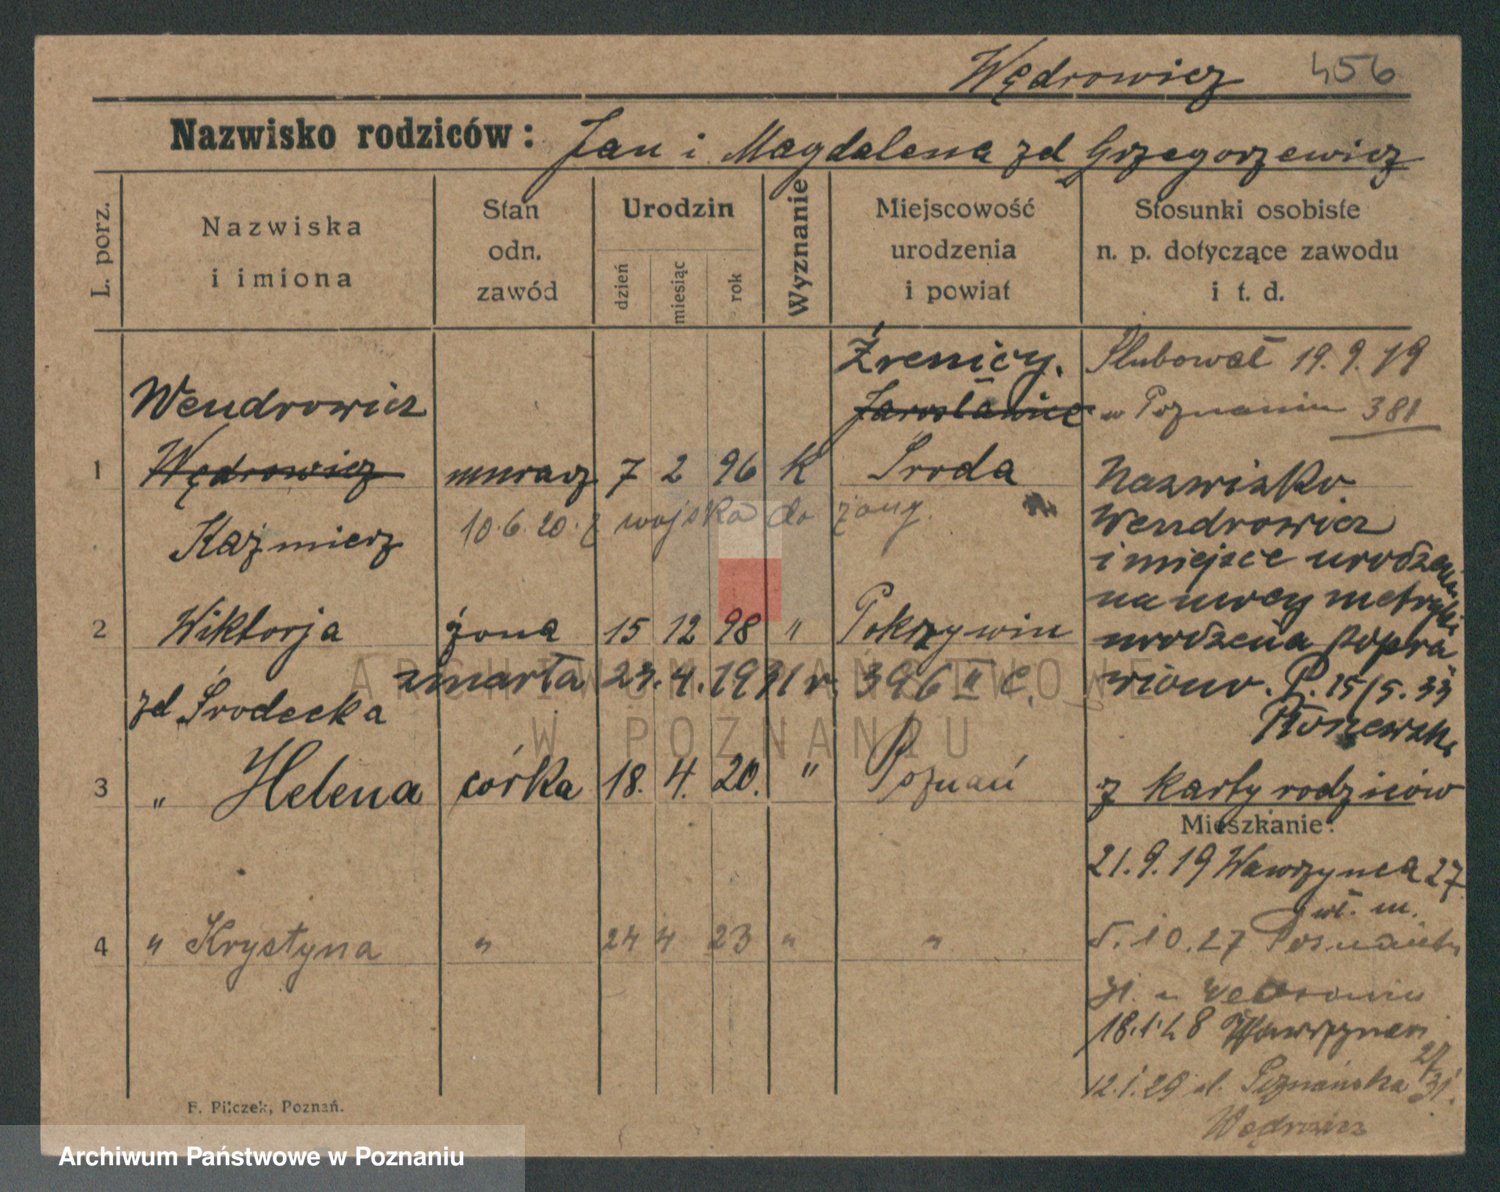 Wędrowicz 456
Nazwisko rodziców: Jan i Magdalena zd Grzegorzewicz
L. porz.
Nazwiska i imiona
Stan odn. zawód
Urodzin
dzień miesiąc rok
Wyznanie
Miejscowość urodzenia i powiat
Stosunki osobiste n. p. dotyczące zawodu i t. d.
Wendrowicz
Źrenicy.
Jarosławice
1 Wędrowicz murarz 7 2 96 K Środa
Kaźmierz
10.6.20. z wojska do żony.
2 Wiktorja żona 15 12 98 " Pokrzywin
zmarła 23.4.1931 r. 396 II C.
zd Środecka
3 " Helena córka 18. 4. 20. " Poznań
4 " Krystyna " 24 4 23 " "
Ślubował 19.9.19
w Poznaniu 381
Nazwisko
Wendrowicz
i miejsce urodzenia
na mocy metryki
urodzenia popra
wiono. P. 15/5.33
z karty rodziców
Mieszkanie:
21.9.19 Wawrzyńca 27
wł. m.
5.10.27
18.1.28 Wawrzyńca
27
12.1.29 ul. Poznańska 31.
F. Pilczek, Poznań.
ARCHIWUM PAŃSTWOWE
W POZNANIU
Archiwum Państwowe w Poznaniu